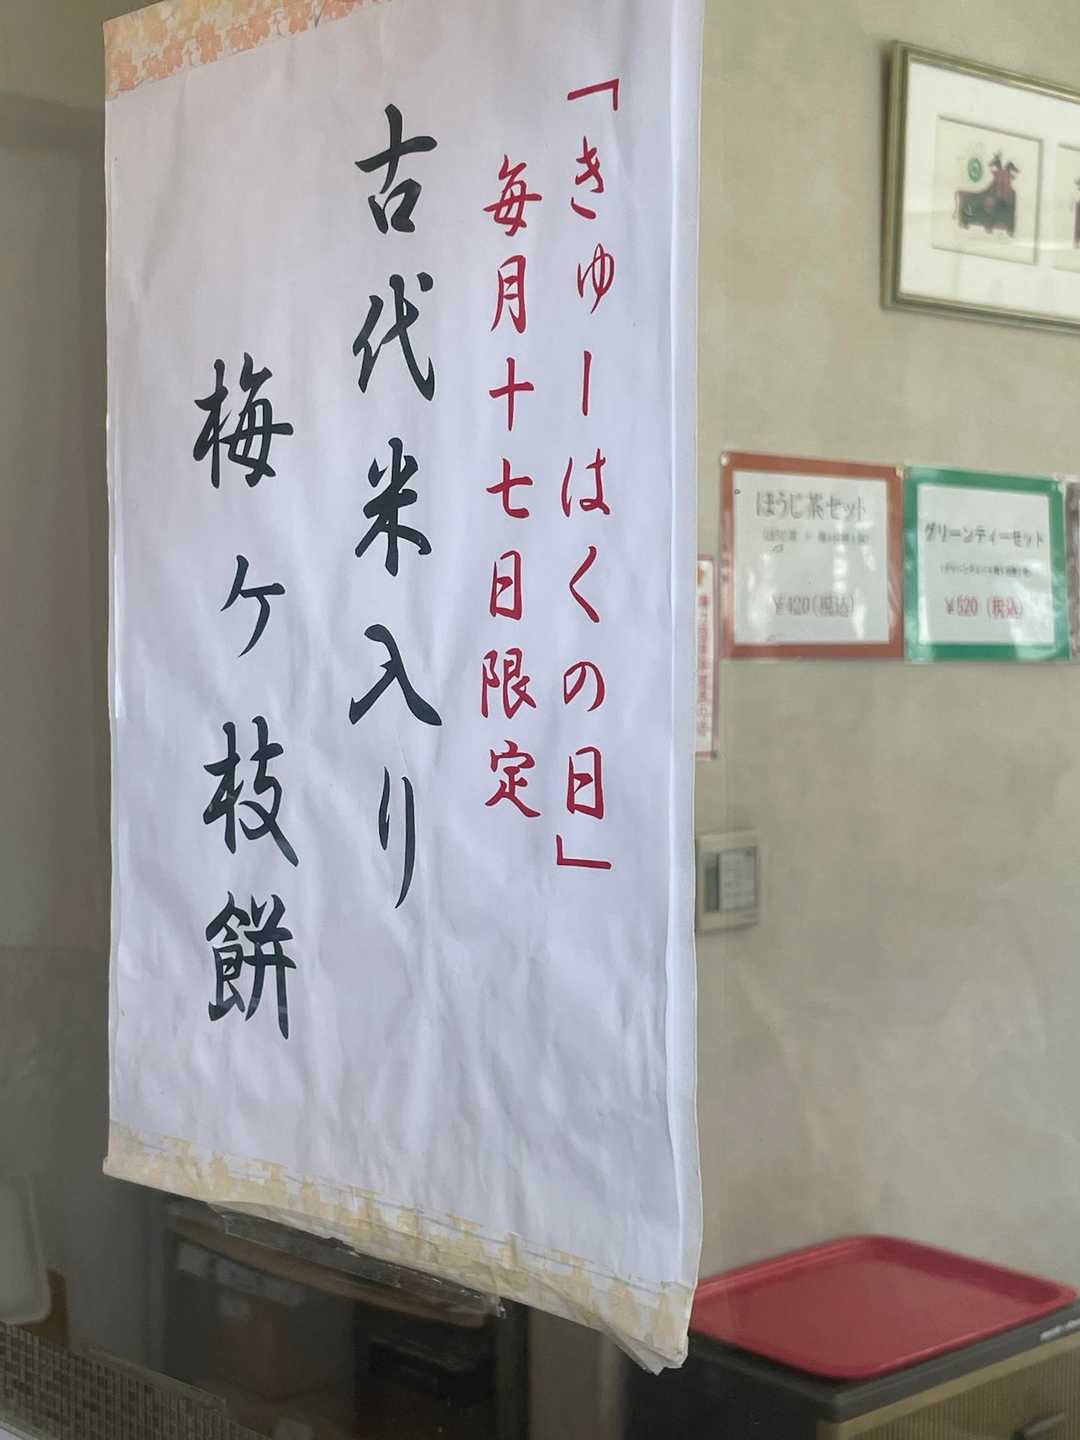 「きゅーはくの日」
毎月十七日限定
古代米入り
梅ヶ枝餅
ほうじ茶セット
¥420(税込)
グリーンティーセット
¥520(税込)